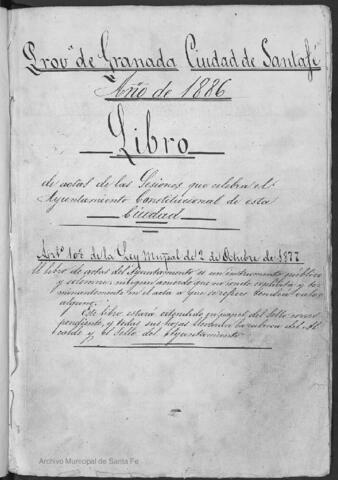 Prov.ª de Granada Ciudad de Santafé
Año de 1886
Libro
de actas de las Sesiones que celebra el
Ayuntamiento Constitucional de esta
Ciudad
Art.º 102 de la Ley Munpal de 2 de Octubre de 1877
El libro de actas del Ayuntamiento es un instrumento público
y solemne; ningun acuerdo que no conste explícita y ter-
minantemente en el acta a que se refiere tendrá valor
alguno.
Este libro estará estendido en papel del Sello corres-
pondiente, y todas sus hojas llevarán la rubrica del Al-
calde y el Sello del Ayuntamiento.
Archivo Municipal de Santa Fe